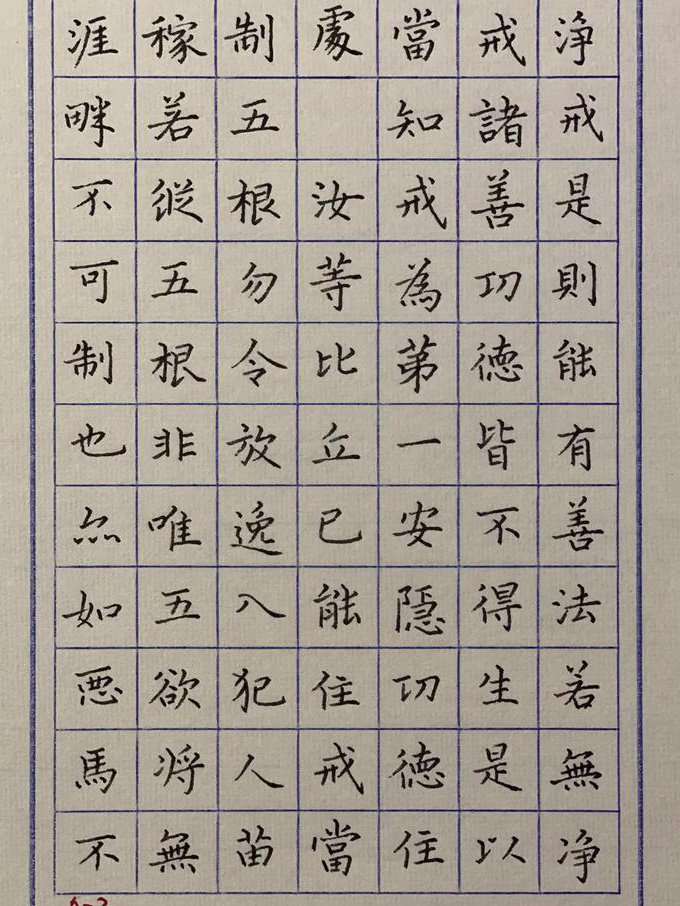 浄戒是則能有善法若無净
戒諸善功德皆不得生是以
當知戒為第一安隱功德住
處 汝等比丘已能住戒當
制五根勿令放逸入犯人苗
稼若縱五根非唯五欲將無
涯畔不可制也亦如惡馬不